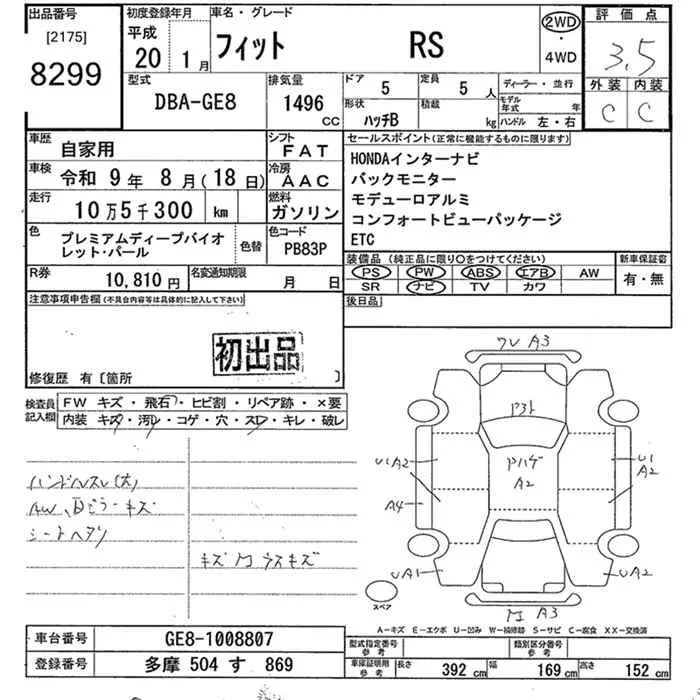 出品番号
[2175]
8299
初度登録年月
平成
20 1月
車名・グレード
フィット RS
2WD
・
4WD
評価点
3.5
外装 内装
C C
型式
DBA-GE8
排気量
1496
CC
ドア 5
定員 5 人
形状 ハッチB
積載 kg
ディーラー・並行
モデル年式 年
ハンドル 左・右
車歴
自家用
シフト
FAT
車検
令和 9年 8月(18日)
冷房
AAC
走行
10万5千300 km
燃料
ガソリン
色
プレミアムディープバイオ
レット・パール
色替
色コード
PB83P
R券
10,810円
名変通知期限
月 日
セールスポイント(正常に機能するものに限ります)
HONDAインターナビ
バックモニター
モデューロアルミ
コンフォートビューパッケージ
ETC
装備品(純正品に限り○をつけてください)
PS PW ABS エアB AW
SR ナビ TV カワ
新車保証書
有・無
後日品
注意事項申告欄(不具合内容等は具体的に記入して下さい)
初出品
修復歴 有〔箇所
検査員
記入欄
FW キズ・飛石・ヒビ割・リペア跡・×要
内装 キズ・汚レ・コゲ・穴・スレ・キレ・破レ
ハンドルスレ(大)
シートヘタリ
ワレ A3
Pハゲ
A2
U1 A2
A4
UA1
U1
A2
UA2
A3
スペア
A-キズ E-エクボ U-凹み W-補修跡 S-サビ C-腐食 XX-交換済
車台番号
GE8-1008807
登録番号
多摩 504 す 869
型式指定番号
参考
類別区分番号
参考
車庫証明用
参考
長さ 392 cm
幅 169 cm
高さ 152 cm